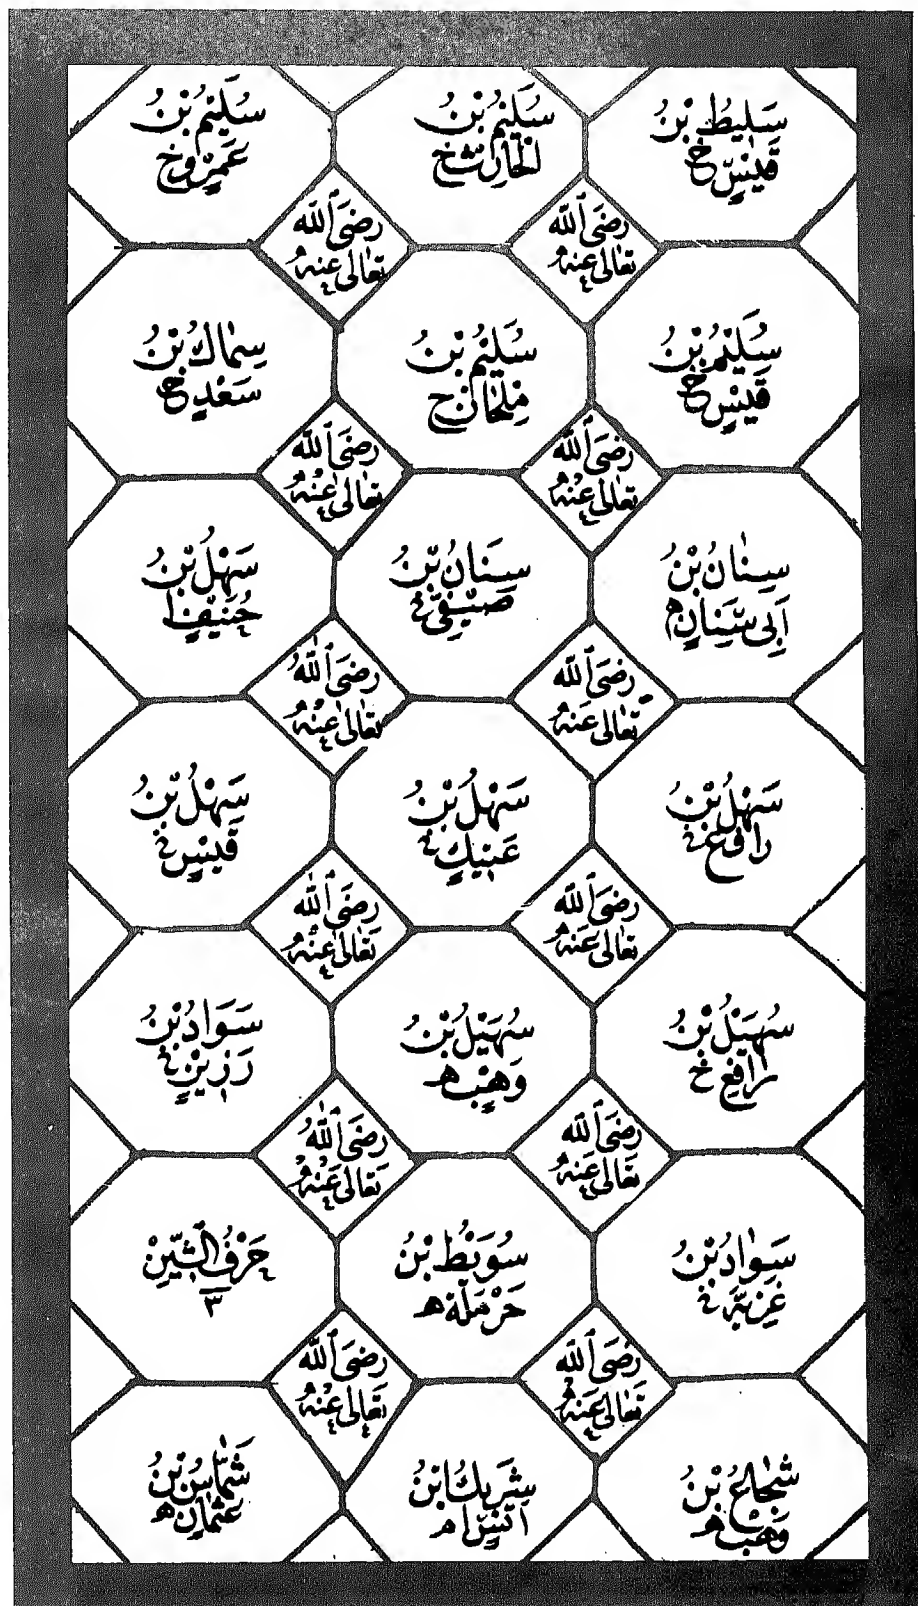 سَلِيطُ بْنُ
قَيْسٍ خ
سُلَيْمُ بْنُ
الْحَارِثِ خ
سُلَيْمُ بْنُ
عَمْرٍو خ
رَضِيَ اللّٰهُ
تَعَالٰى عَنْهُ
رَضِيَ اللّٰهُ
تَعَالٰى عَنْهُ
سُلَيْمُ بْنُ
قَيْسٍ خ
سُلَيْمُ بْنُ
مِلْحَانَ خ
سِمَاكُ بْنُ
سَعْدٍ خ
رَضِيَ اللّٰهُ
تَعَالٰى عَنْهُ
رَضِيَ اللّٰهُ
تَعَالٰى عَنْهُ
سِنَانُ بْنُ
أَبِي سِنَانٍ ه
سِنَانُ بْنُ
صَيْفِيٍّ خ
سَهْلُ بْنُ
حُنَيْفٍ ا
رَضِيَ اللّٰهُ
تَعَالٰى عَنْهُ
رَضِيَ اللّٰهُ
تَعَالٰى عَنْهُ
سَهْلُ بْنُ
رَافِعٍ خ
سَهْلُ بْنُ
عَتِيكٍ خ
سَهْلُ بْنُ
قَيْسٍ خ
رَضِيَ اللّٰهُ
تَعَالٰى عَنْهُ
رَضِيَ اللّٰهُ
تَعَالٰى عَنْهُ
سُهَيْلُ بْنُ
رَافِعٍ خ
سُهَيْلُ بْنُ
وَهْبٍ ه
سَوَادُ بْنُ
رَزِينٍ خ
رَضِيَ اللّٰهُ
تَعَالٰى عَنْهُ
رَضِيَ اللّٰهُ
تَعَالٰى عَنْهُ
سَوَادُ بْنُ
غَزِيَّةَ خ
سُوَيْبِطُ بْنُ
حَرْمَلَةَ ه
حَرْفُ الشِّيْنِ
٣
رَضِيَ اللّٰهُ
تَعَالٰى عَنْهُ
رَضِيَ اللّٰهُ
تَعَالٰى عَنْهُ
شُجَاعُ بْنُ
وَهْبٍ ه
شَرِيكُ بْنُ
أَنَسٍ ا م
شَمَّاسُ بْنُ
عُثْمَانَ ه